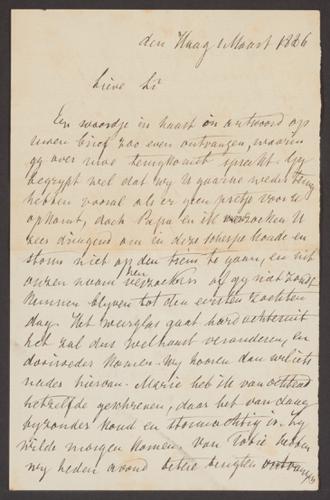 den Haag 1 Maart 1886
Lieve Li
Een woordje in haast in antwoord op
uwen brief zoo even ontvangen, waarin
gy over uwe terugkomst spreekt. Gy
begrypt wel dat wy U gaarne weder terug
hebben vooral als er geen pretje voor u
opkomt, doch Papa en ik verzoeken U
zeer dringend om in deze scherpe koude en
storm niet op den trein te gaan, en uit
onzen naam hen verzoeken of gy niet zoudt
kunnen blyven tot den eersten zachten
dag. Het weerglas gaat hard achteruit
het zal dus wel haast veranderen, en
dooiweder komen. Wy hooren dan wel iets
nader hiervan. Marie heb ik van ochtend
hetzelfde geschreven, daar het van daag
byzonder koud en stormachtig is. Zy
wilde morgen komen. Van
wy heden avond betere